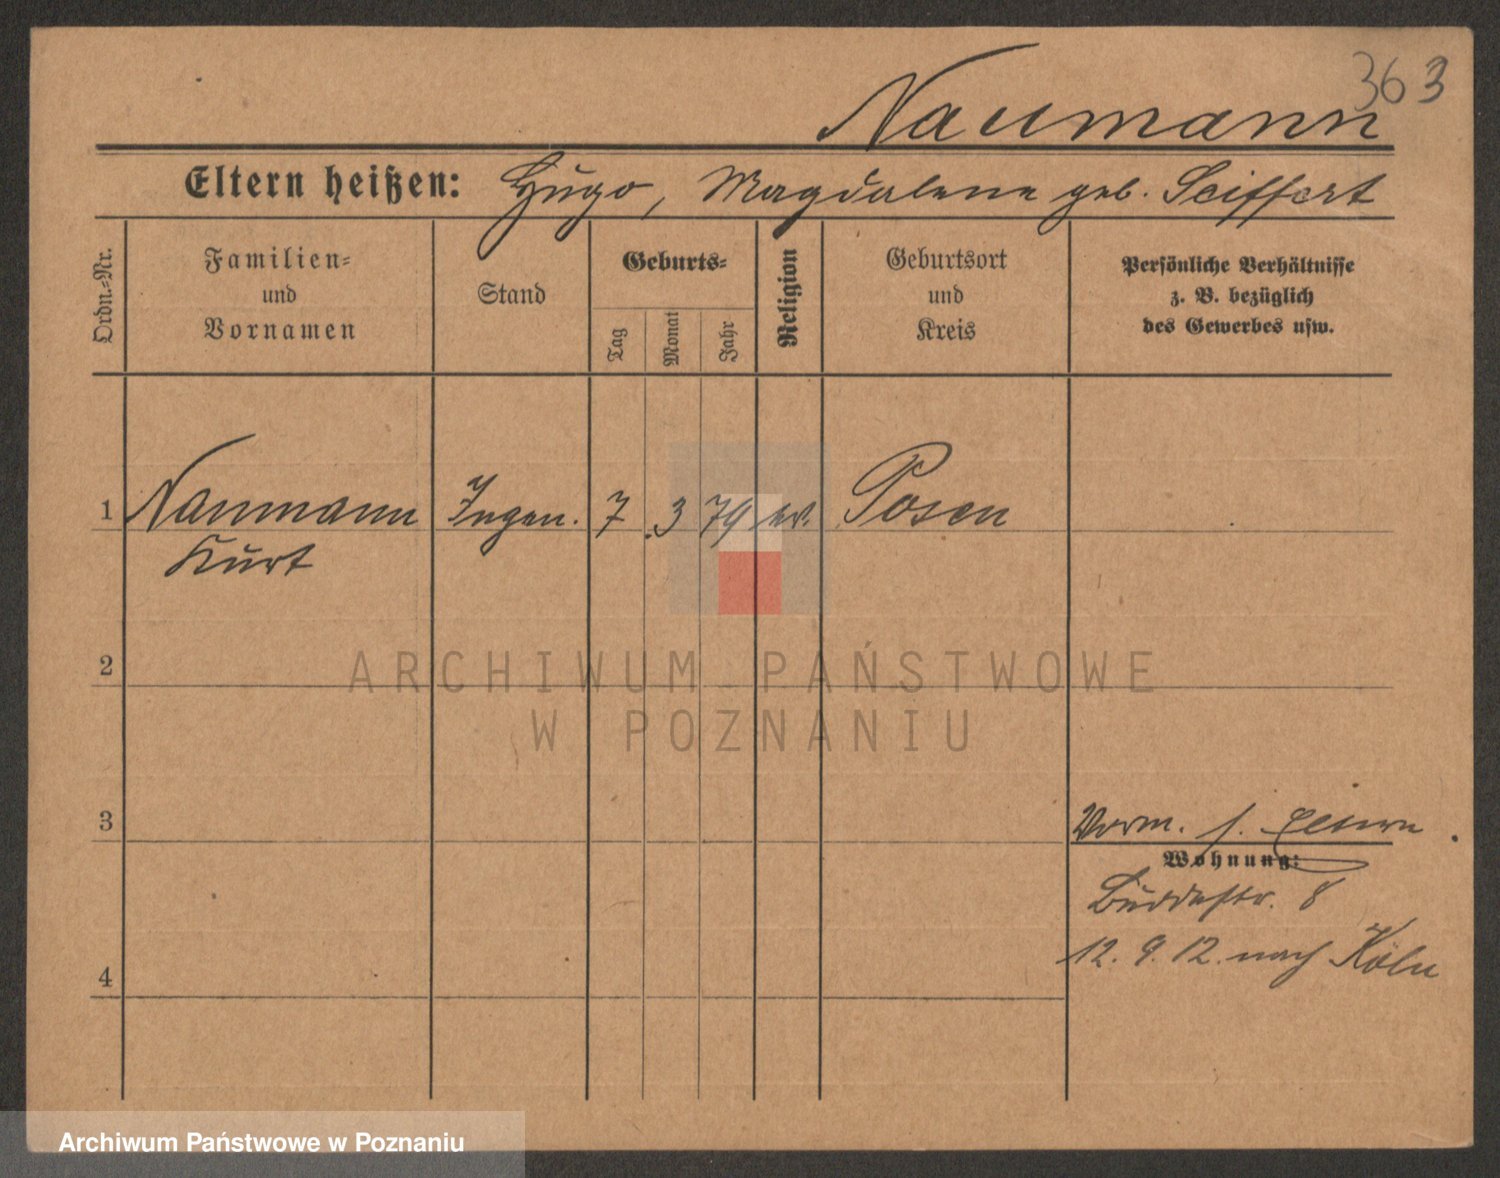 363
Naumann
Eltern heißen: Hugo, Magdalene geb. Seiffert
Ordn.=Nr.
Familien=
und
Vornamen
Stand
Geburts=
Tag
Monat
Jahr
Religion
Geburtsort
und
Kreis
Persönliche Verhältnisse
z. B. bezüglich
des Gewerbes usw.
1 Naumann Ingen. 7 3 79 ev. Posen
Kurt
2
ARCHIWUM PAŃSTWOWE
W POZNANIU
3
Verm. f.
Wohnung:
Buddestr. 8
12. 9. 12. nach Köln
4
Archiwum Państwowe w Poznaniu